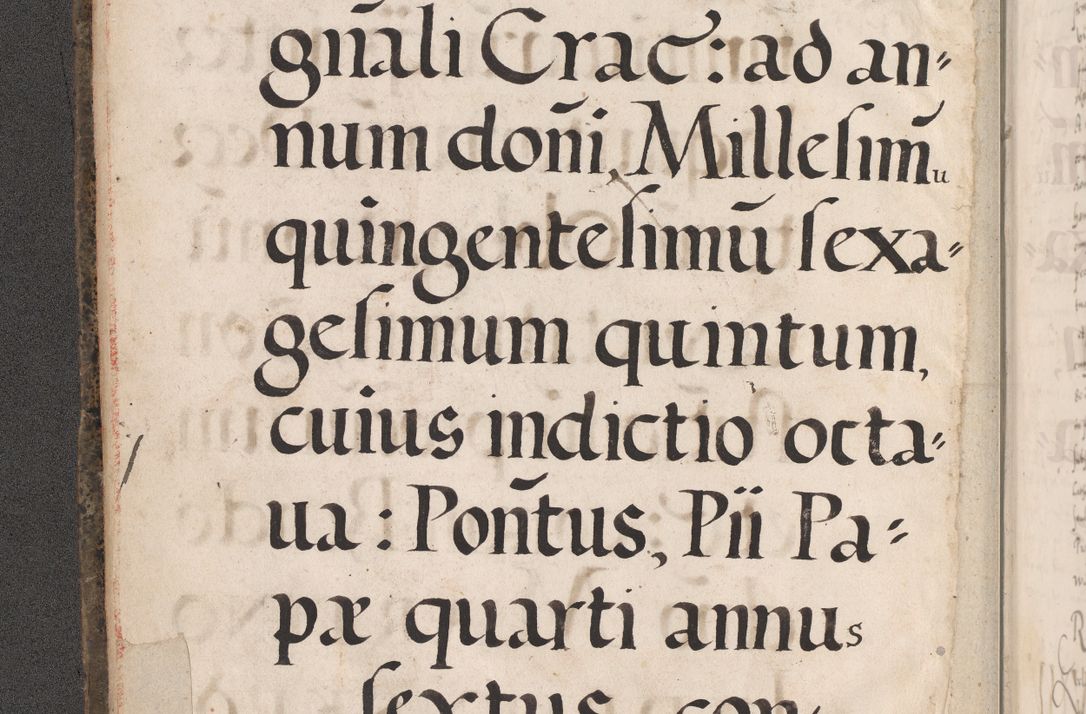 gn̄ali Crac̄: ad an⸗
num don̄i, Milleſim̄u
quingenteſimū ſexa⸗
geſimum quintum,
cuius indictio octa⸗
ua: Pon̄tus, Pii Pa⸗
pæ quarti annus
ſextus con⸗